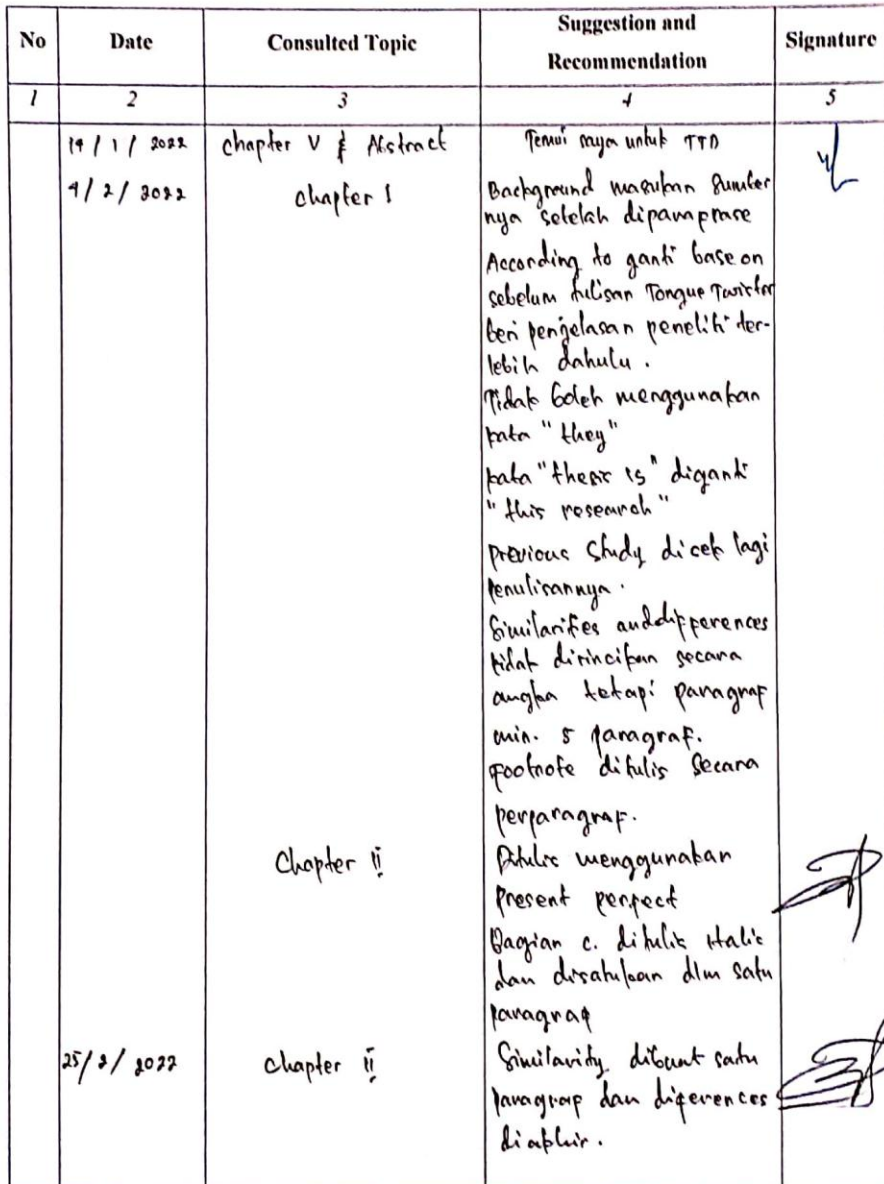 No Date Consulted Topic Suggestion and Recommendation Signature
1 2 3 4 5
14 / 1 / 2022 chapter V & Abstract Temui saya untuk TTD
4/ 2 / 2022 chapter I Background masukan sumber
nya setelah diparaprase
According to ganti base on
sebelum tulisan Tongue Twister
beri penjelasan peneliti ter-
lebih dahulu .
Tidak boleh menggunakan
kata "they"
kata "thesis is" diganti
"this research"
previous study dicek lagi
penulisannya .
Similarities and differences
tidak dirincikan secara
angka tetapi paragraf
min. 5 paragraf.
Footnote ditulis secara
perparagraf.
Chapter II Ditulis menggunakan
present perfect
Bagian c. ditulis italic
dan disatukan dlm satu
paragraf
25/ 2/ 2022 chapter II Similarity dibuat satu
paragrap dan diferences
diakhir .